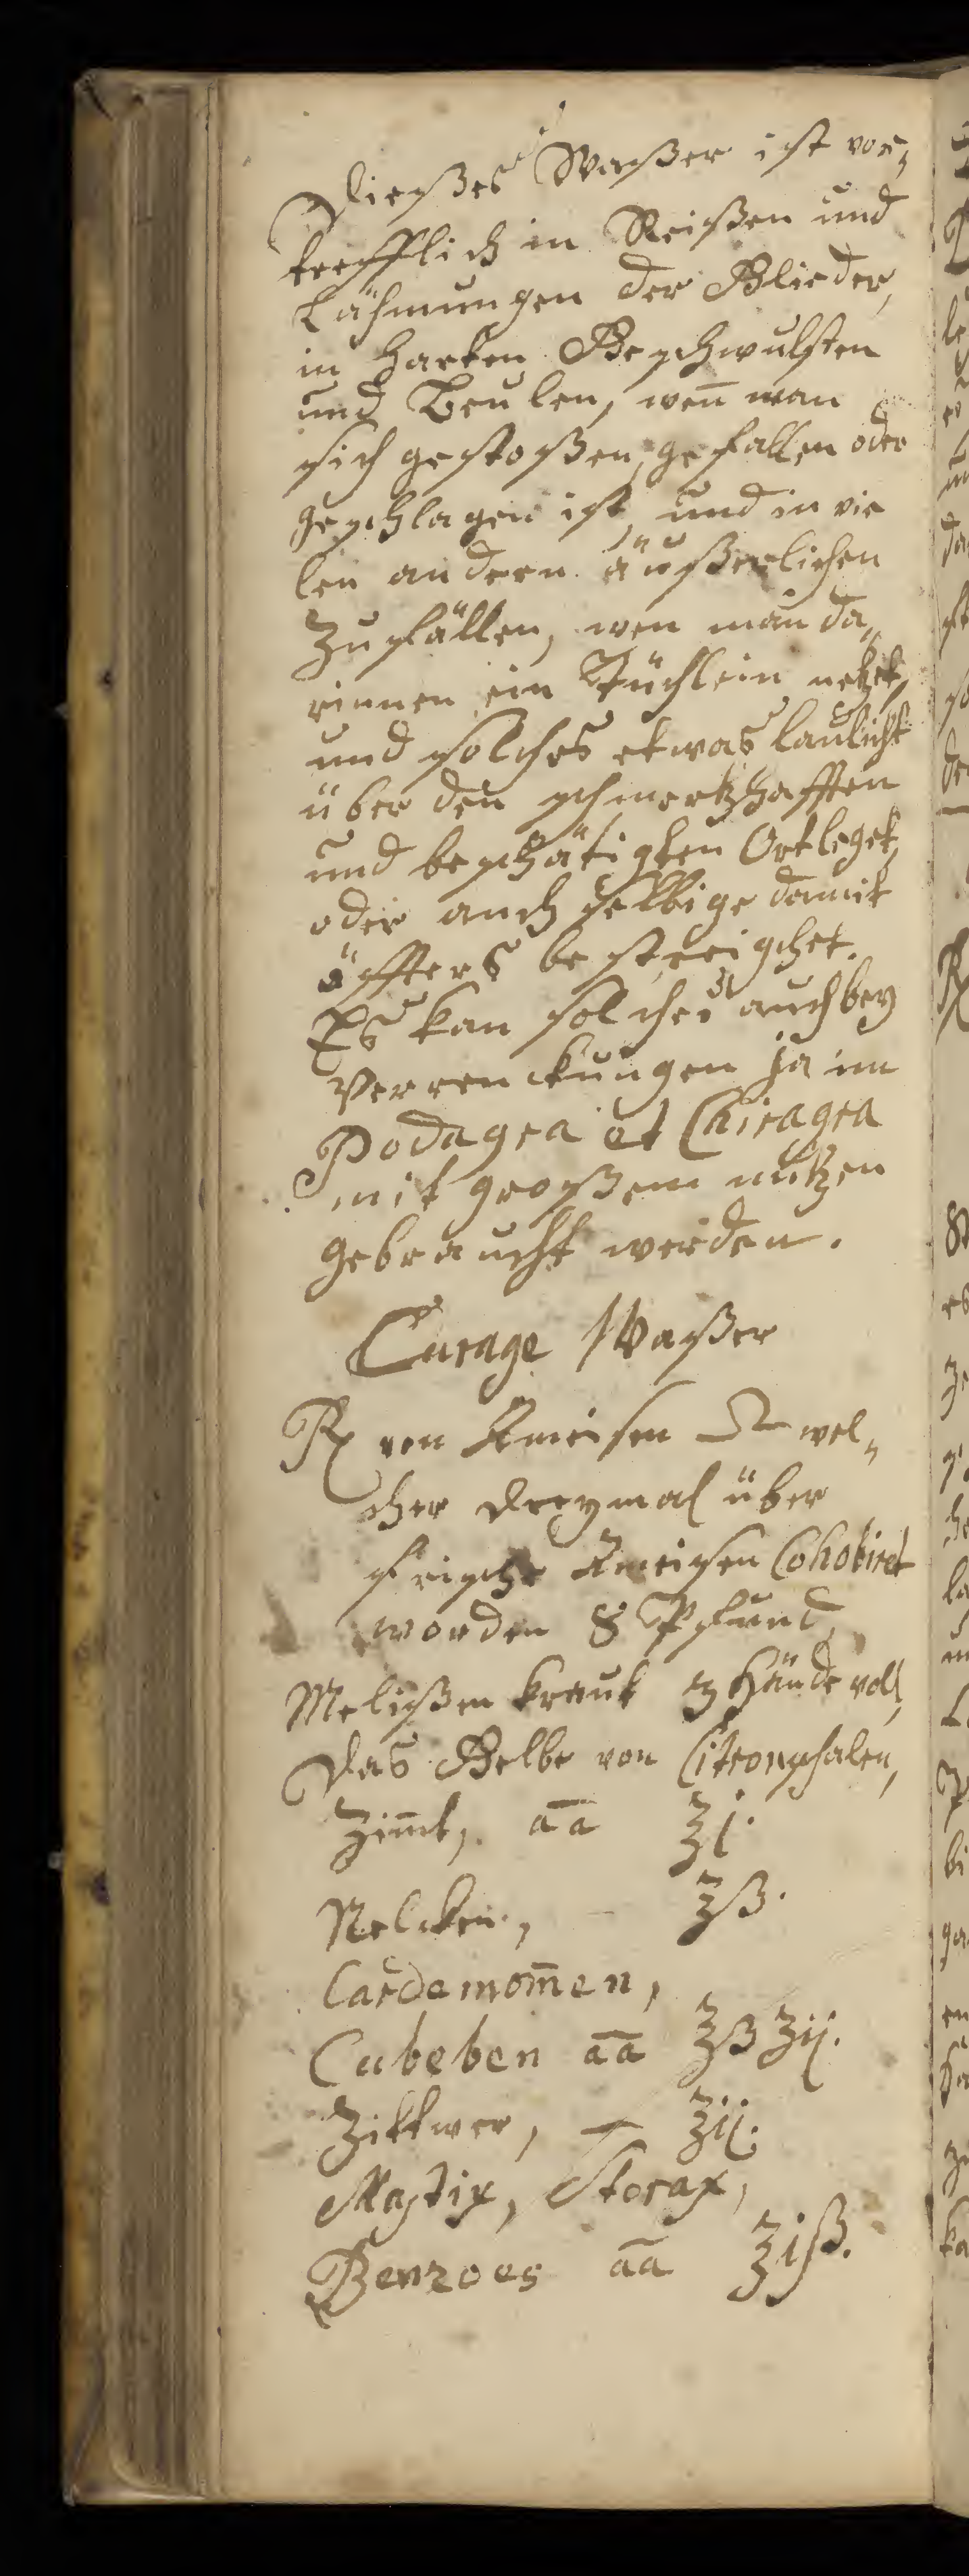 Dießes Waßer ist vor„
trefflich in Reißen und
Lähmungen der Glieder,
in harten Geschwulsten
und Beulen, weñ man
sich gestoßen, gefallen oder
geschlagen ist, und in vie
len andern äußerlichen
Zufällen, wen man da„
rinnen ein Tüchlein netzet,
und solches etwas laulicht
über den schmertzhafften
und beschätigten Ort leget,
oder auch selbige damit
öffters bestreichet.
Es kan solches auch bey
Verrenckungen ja im
Podagra et Chiragra
mit großem nutzen
gebraucht werden.
Curage Waßer
℞ von Ameisen welcher
dreymal über
frische Ameisen Cohobiret
worden 8 Pfund,
Melißen kraut 3 Hände voll,
Das Gelbe von Citronschalen,
Zim̃t, āā ℥j.
Nelcken, ℥ß.
Cardemom̃en,
Cubeben āā ℥ß ʒij.
Zittwer, – ʒij.
Mastix, Storax,
Benzoes āā ʒiß.